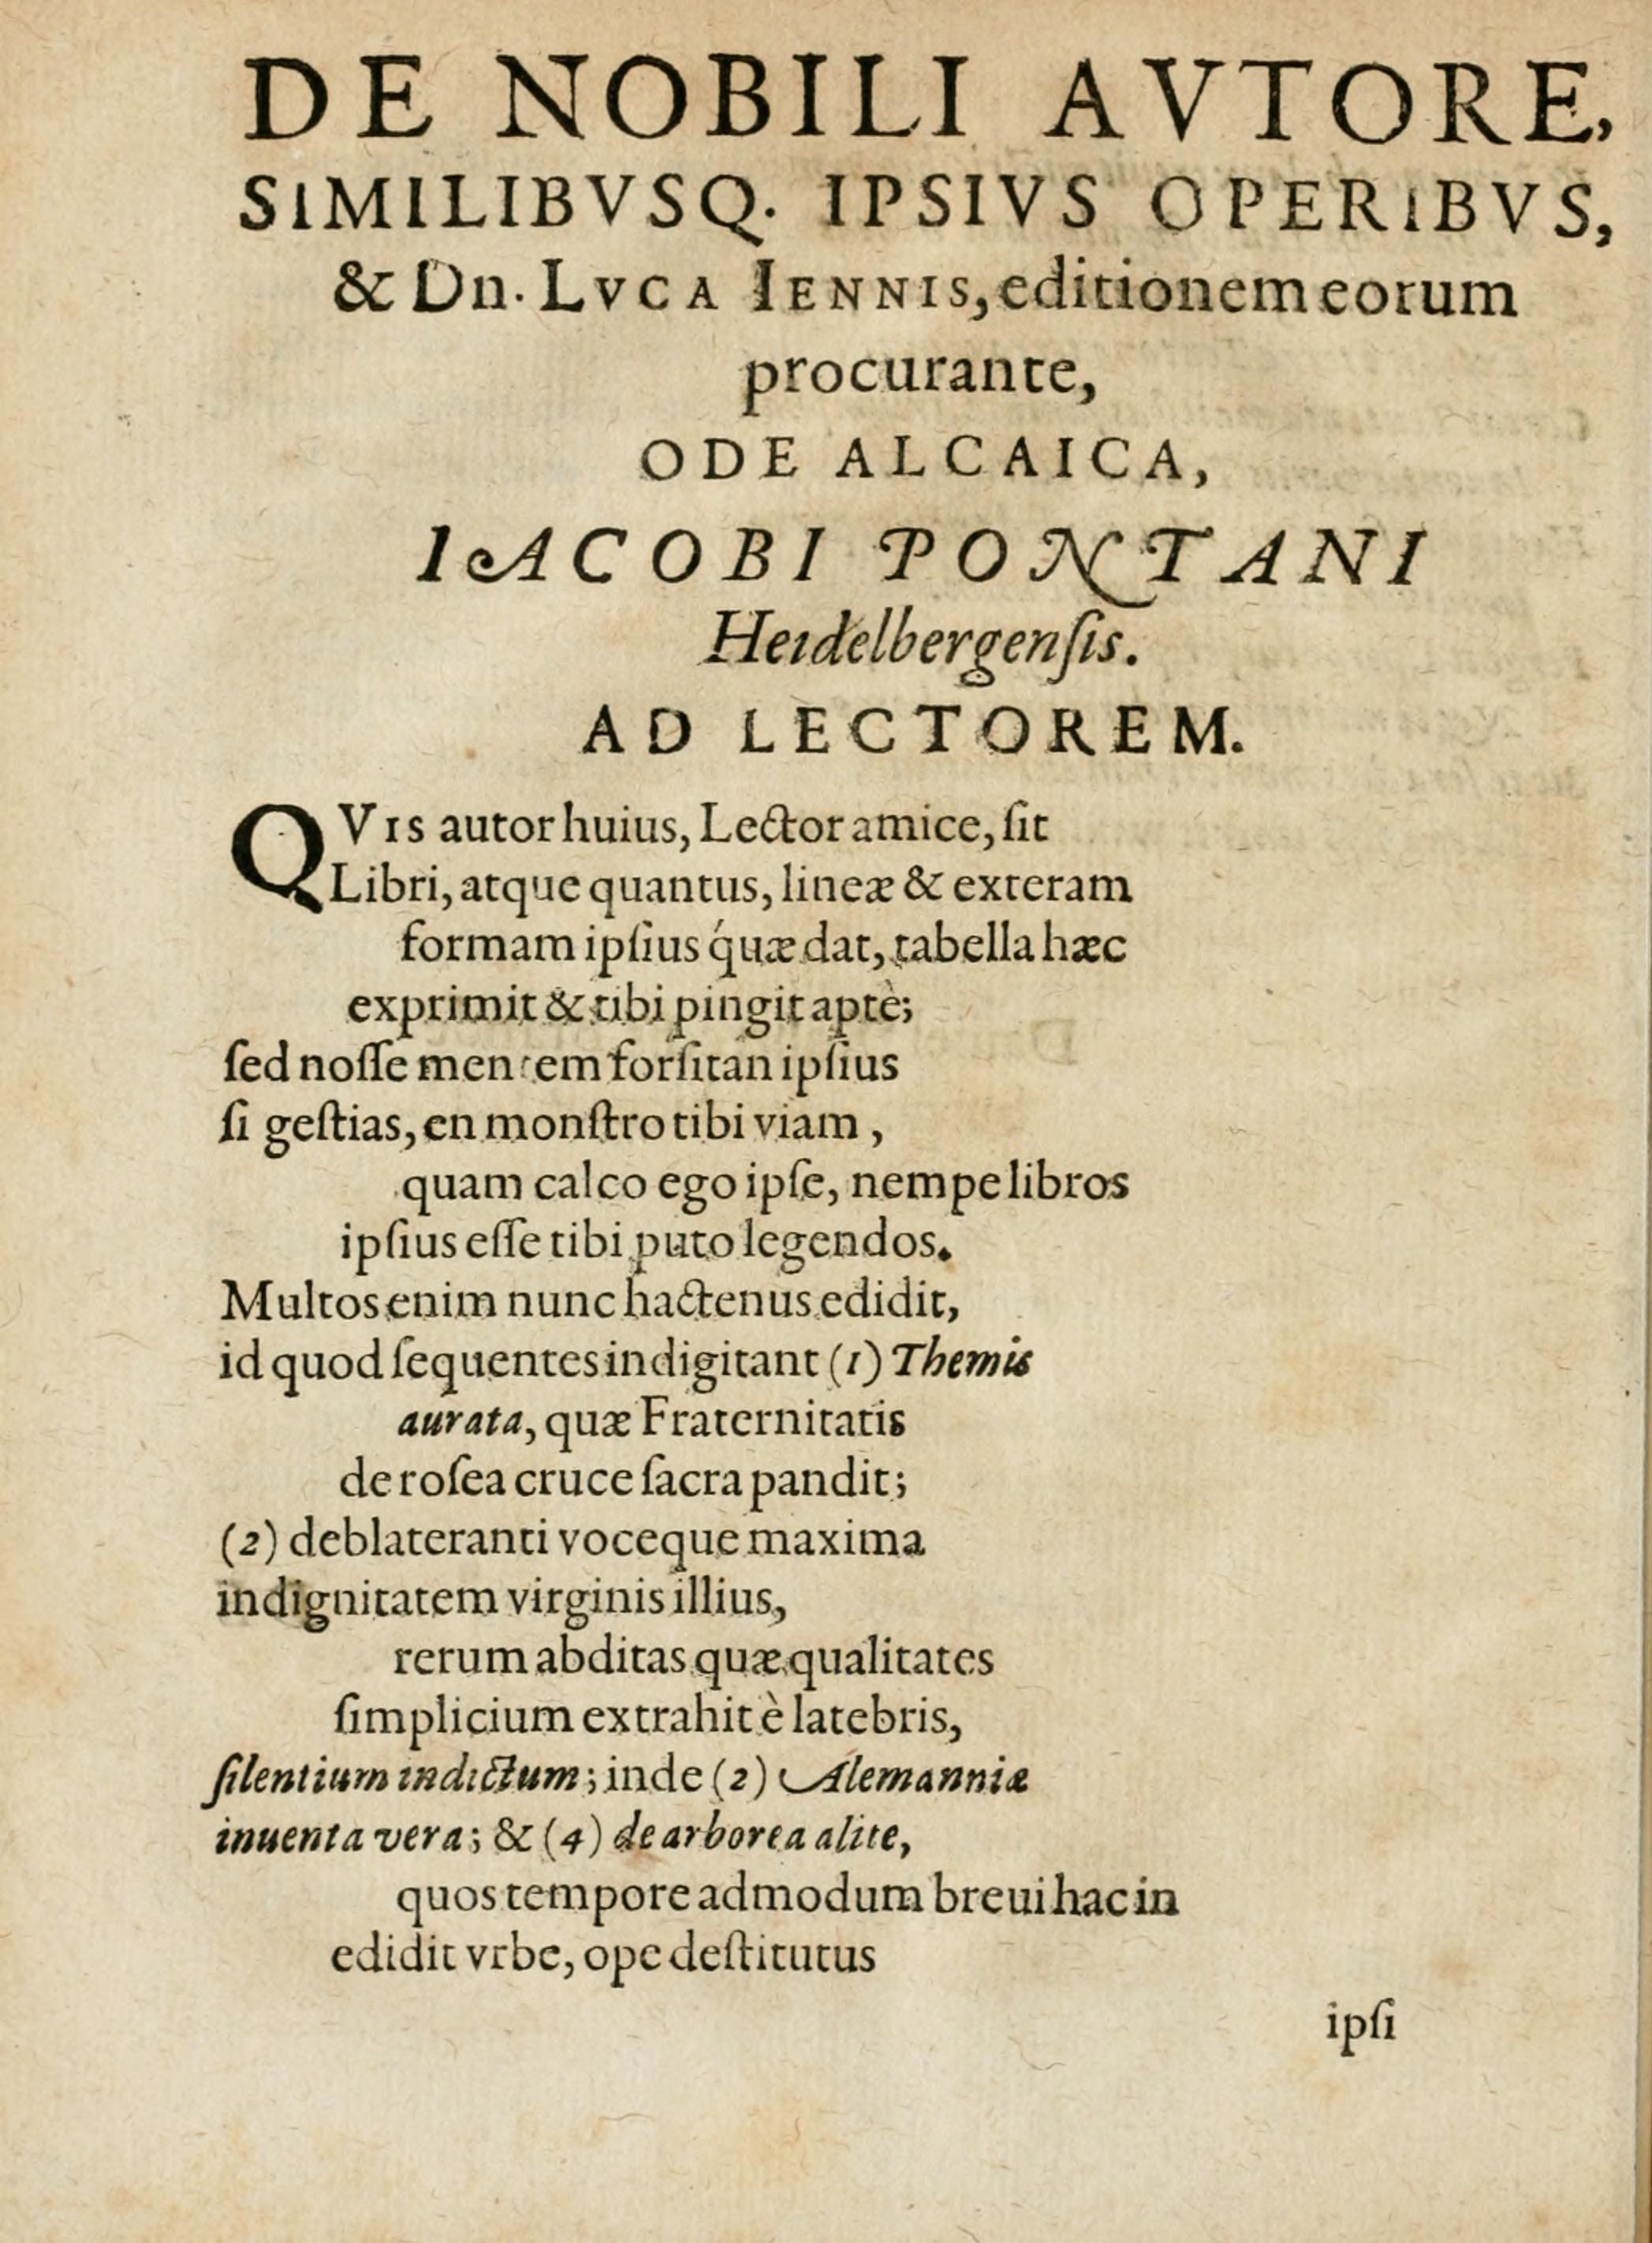 DE NOBILI AVTORE,
SIMILIBVSQ. IPSIVS OPERIBVS,
& Dn. LVCA IENNIS, editionem eorum
procurante,
ODE ALCAICA,
IACOBI PONTANI
Heidelbergenſis.
AD LECTOREM.
QVIS autor huius, Lector amice, ſit
Libri, atque quantus, lineæ & exteram
formam ipſius q́uæ dat, tabella hæc
exprimit & tibi pingit aptè;
ſed noſſe mentem forſitan ipſius
ſi geſtias, en monſtro tibi viam,
quam calco ego ipſe, nempe libros
ipſius eſſe tibi puto legendos.
Multos enim nunc hactenus edidit,
id quod ſequentes indigitant (1) Themis
aurata, quæ Fraternitatis
de roſea cruce ſacra pandit;
(2) deblateranti voceque maxima
indignitatem virginis illius,
rerum abditas quæ qualitates
ſimplicium extrahit è latebris,
ſilentium indictum; inde (2) Alemanniæ
inuenta vera; & (4) de arborea alite,
quos tempore admodum breui hac in
edidit vrbe, ope deſtitutus
ipſi